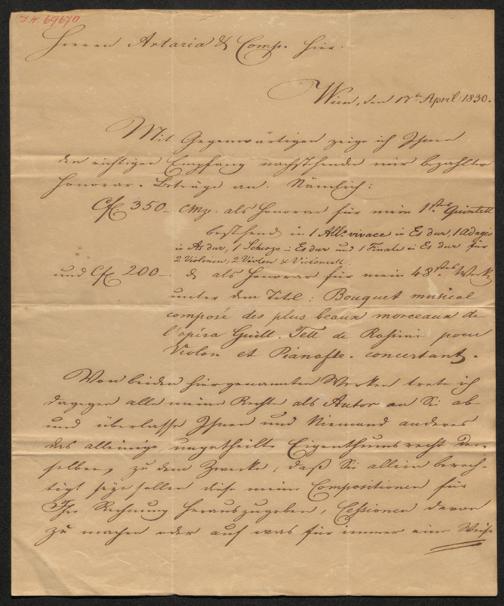 I.N. 69670
Herrn Artaria & Comp. hier.
Wien, den 17t April 1830.
Mit Gegenwärtigen zeige ich Ihnen
den richtigen Empfang nachstehender mir bezahlter
Honorar-Beträge an. Nämlich:
Cf 350 – CMz. als Honorar für mein 1stes Quintett
bestehend in 1 Allo vivace in Es dur, 1 Adagio
in As dur, 1 Scherzo in Es dur und 1 Finale in Es dur für
2 Violinen, 2 Violen & Violoncell.
und Cf 200 – d. als Honorar für mein 48stes Werk
unter dem Titel: Bouquet musical
composé des plus beaux morceaux de
l'opéra Guill. Tell de Rossini pour
Violon et Pianofte. concertant.
Von beiden hier genannten Werken trete ich
dagegen alle meine Rechte als Autor an Sie ab
und überlasse Ihnen und Niemand anderes
das alleinige ungetheilte Eigenthumsrecht der-
selben, zu dem Zwecke, daß Sie allein berech-
tigt seyn sollen diese meine Compositionen für
Ihre Rechnung herauszugeben, Cessionen davon
zu machen oder auf was für immer eine Weise